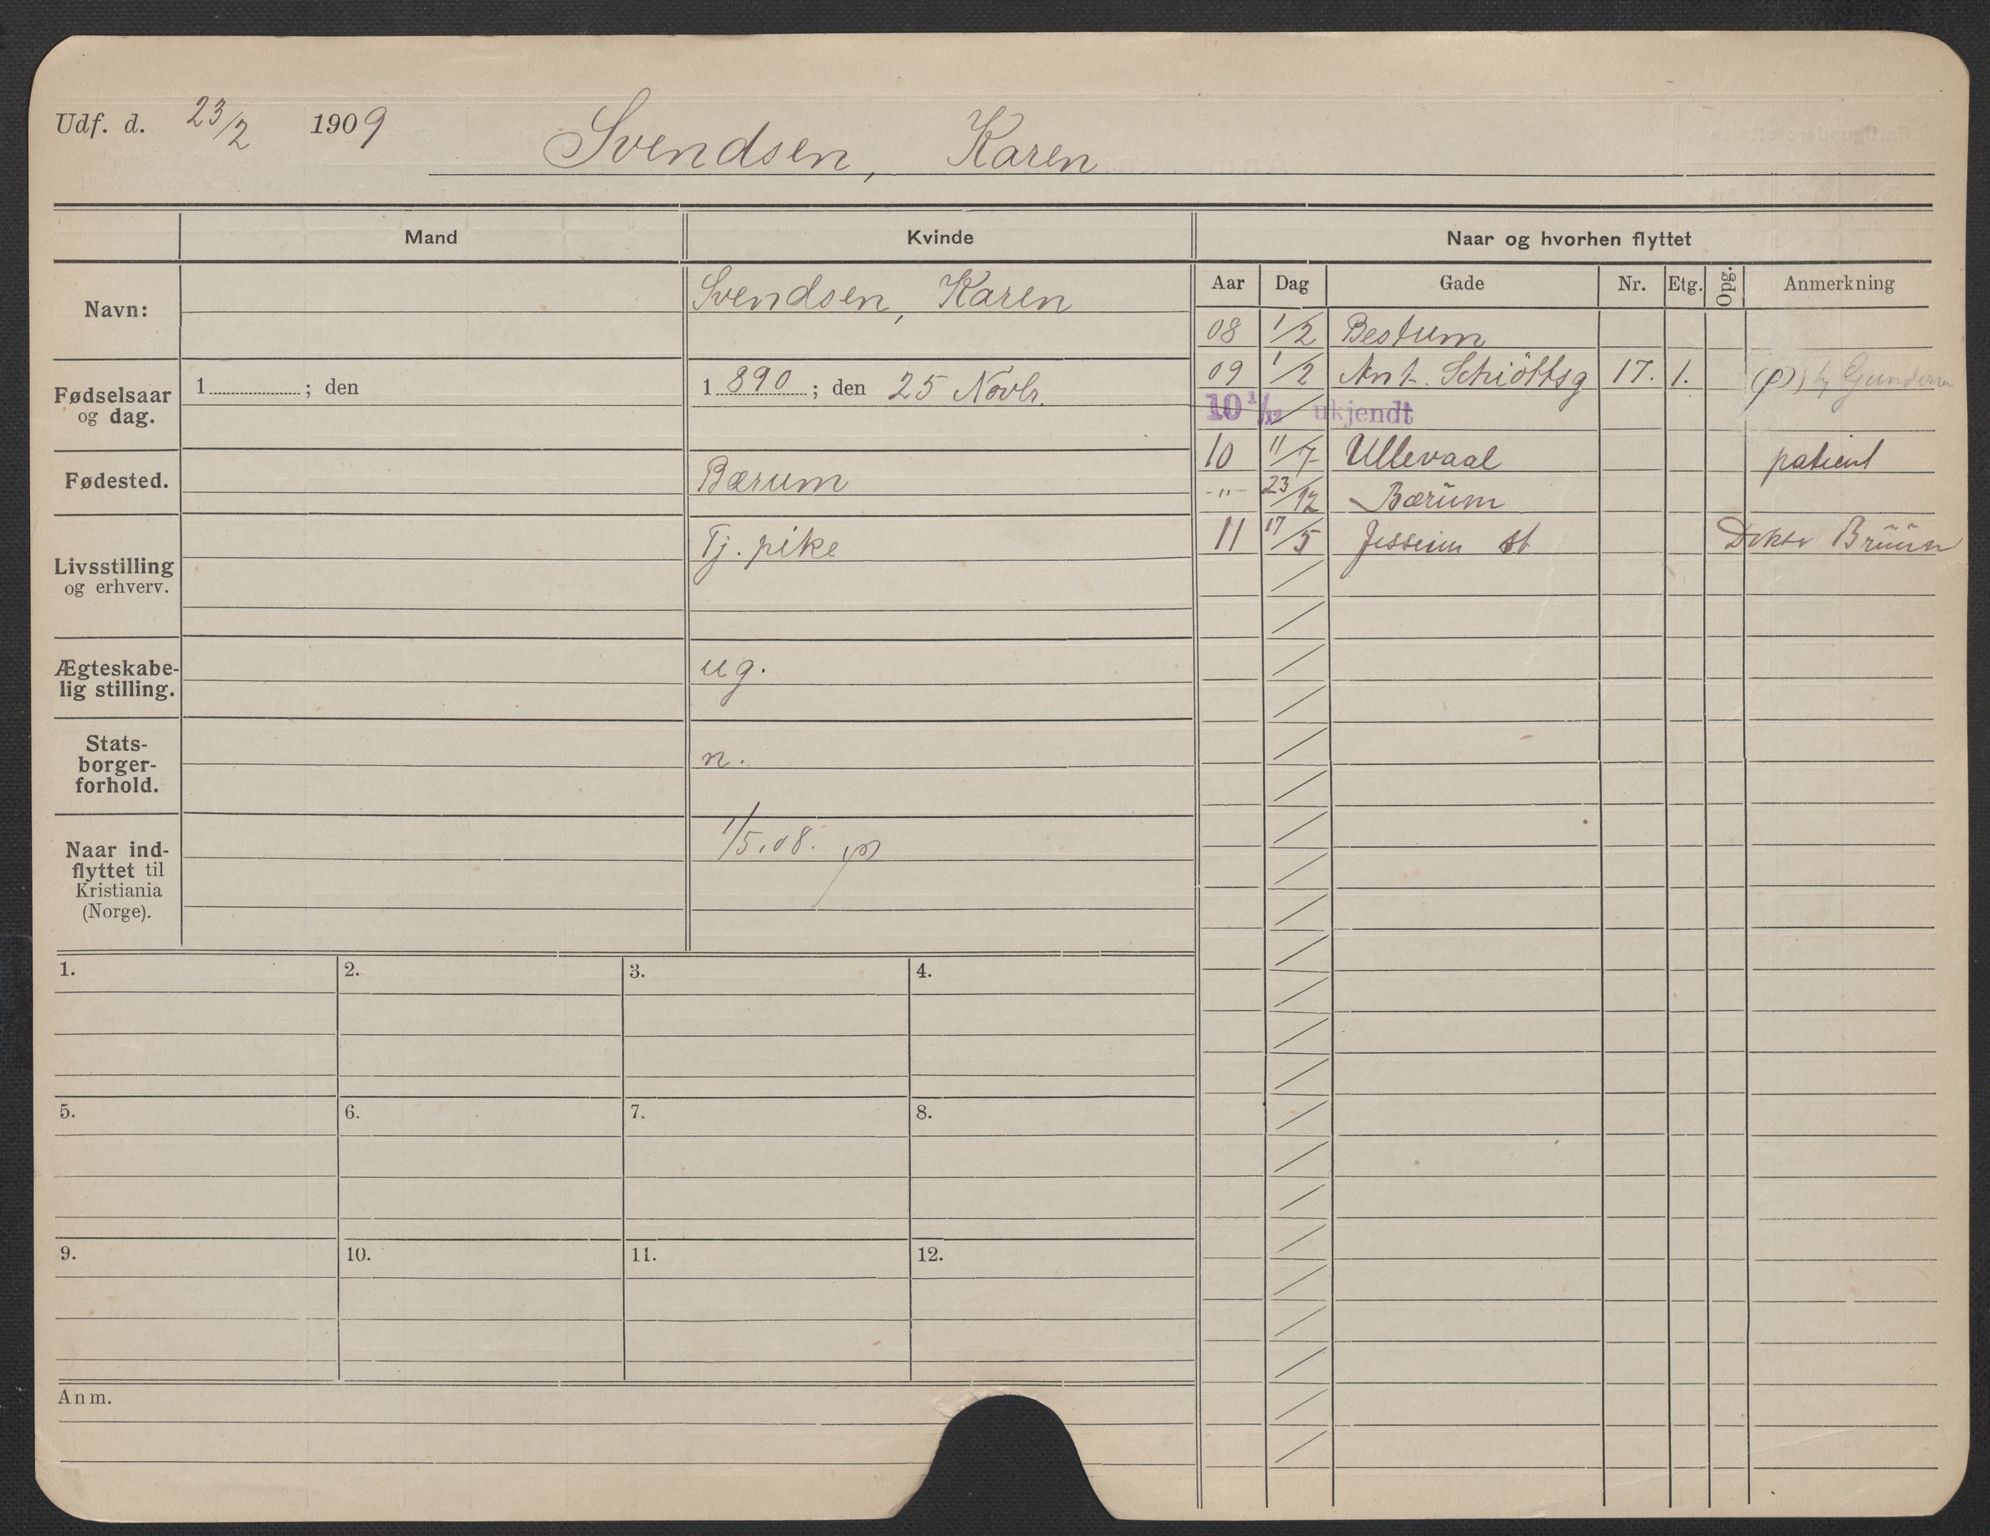 Udf. d. 23/2 1909 Svendsen, Karen
Mand Kvinde Naar og hvorhen flyttet
Aar Dag Gade Nr. Etg. Opg. Anmerkning
Navn: Svendsen, Karen
Fødselsaar og dag. 1 ; den 1 890 ; den 25 Novbr.
Fødested. Bærum
Livsstilling og erhverv. Tj. pike
Ægteskabe-
lig stilling. ug.
Stats-
borger-
forhold. n.
Naar ind-
flyttet til
Kristiania
(Norge). 1/5.08.
08 1/2 Bestum
09 1/2 Ant. Schiöttsg 17. 1. Gundersen
10 1/12 ukjendt
10 11/7 Ullevaal patient
-"- 23/12 Bærum
11 17/5 Jesseim st Doktor Bruun
1. 2. 3. 4.
5. 6. 7. 8.
9. 10. 11. 12.
Anm.